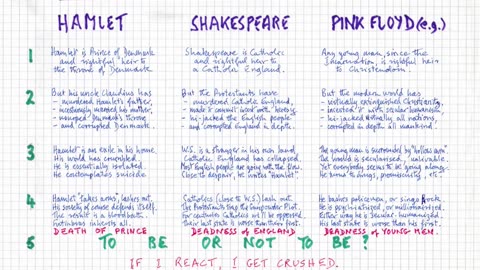 HAMLET SHAKESPEARE PINK FLOYD (e.g.)
1
Hamlet is Prince of Denmark
and rightful heir to
the throne of Denmark.
Shakespeare is Catholic
and rightful heir to
a Catholic England.
Any young man, since the
Incarnation, is rightful heir
to Christendom.
2
But his uncle Claudius has
- murdered Hamlet's father,
- incestuously married his mother,
- usurped Denmark's throne
- and corrupted Denmark.
But the Protestants have
- murdered Catholic England,
- made it commit incest with heresy,
- hi-jacked the English people
- and corrupted England in depth.
But the modern world has
- virtually extinguished Christianity,
- incested it with secular humanism,
- hi-jacked virtually all nations,
- corrupted in depth all mankind.
3
Hamlet is an exile in his home.
His world has crumbled.
He is essentially isolated.
He contemplates suicide.
W.S. is a stranger in his own land
Catholic England has collapsed.
Most English people are going with the flow.
Close to despair, he writes "Hamlet".
The young man is surrounded by "hollow men"
The world is secularised, unlivable
Yet everybody seems to be going along.
He turns to drugs, promiscuity, etc.
4
Hamlet "takes arms", lashes out.
His society of course defends itself.
The result is a bloodbath.
Fortinbras inherits all.
DEATH OF PRINCE
Catholics (close to W.S.) lash out.
The Protestants trap the Gunpowder Plot.
For centuries Catholics will be oppressed,
their last state is worse than their first.
DEADNESS OF ENGLAND
He bashes policemen, or sings Rock.
He is psychiatrized, or millionairised.
Either way he is secular-humanized.
His last state is worse than his first.
DEADNESS OF YOUNG MEN.
5 TO BE OR NOT TO BE?
IF I REACT, I GET CRUSHED.